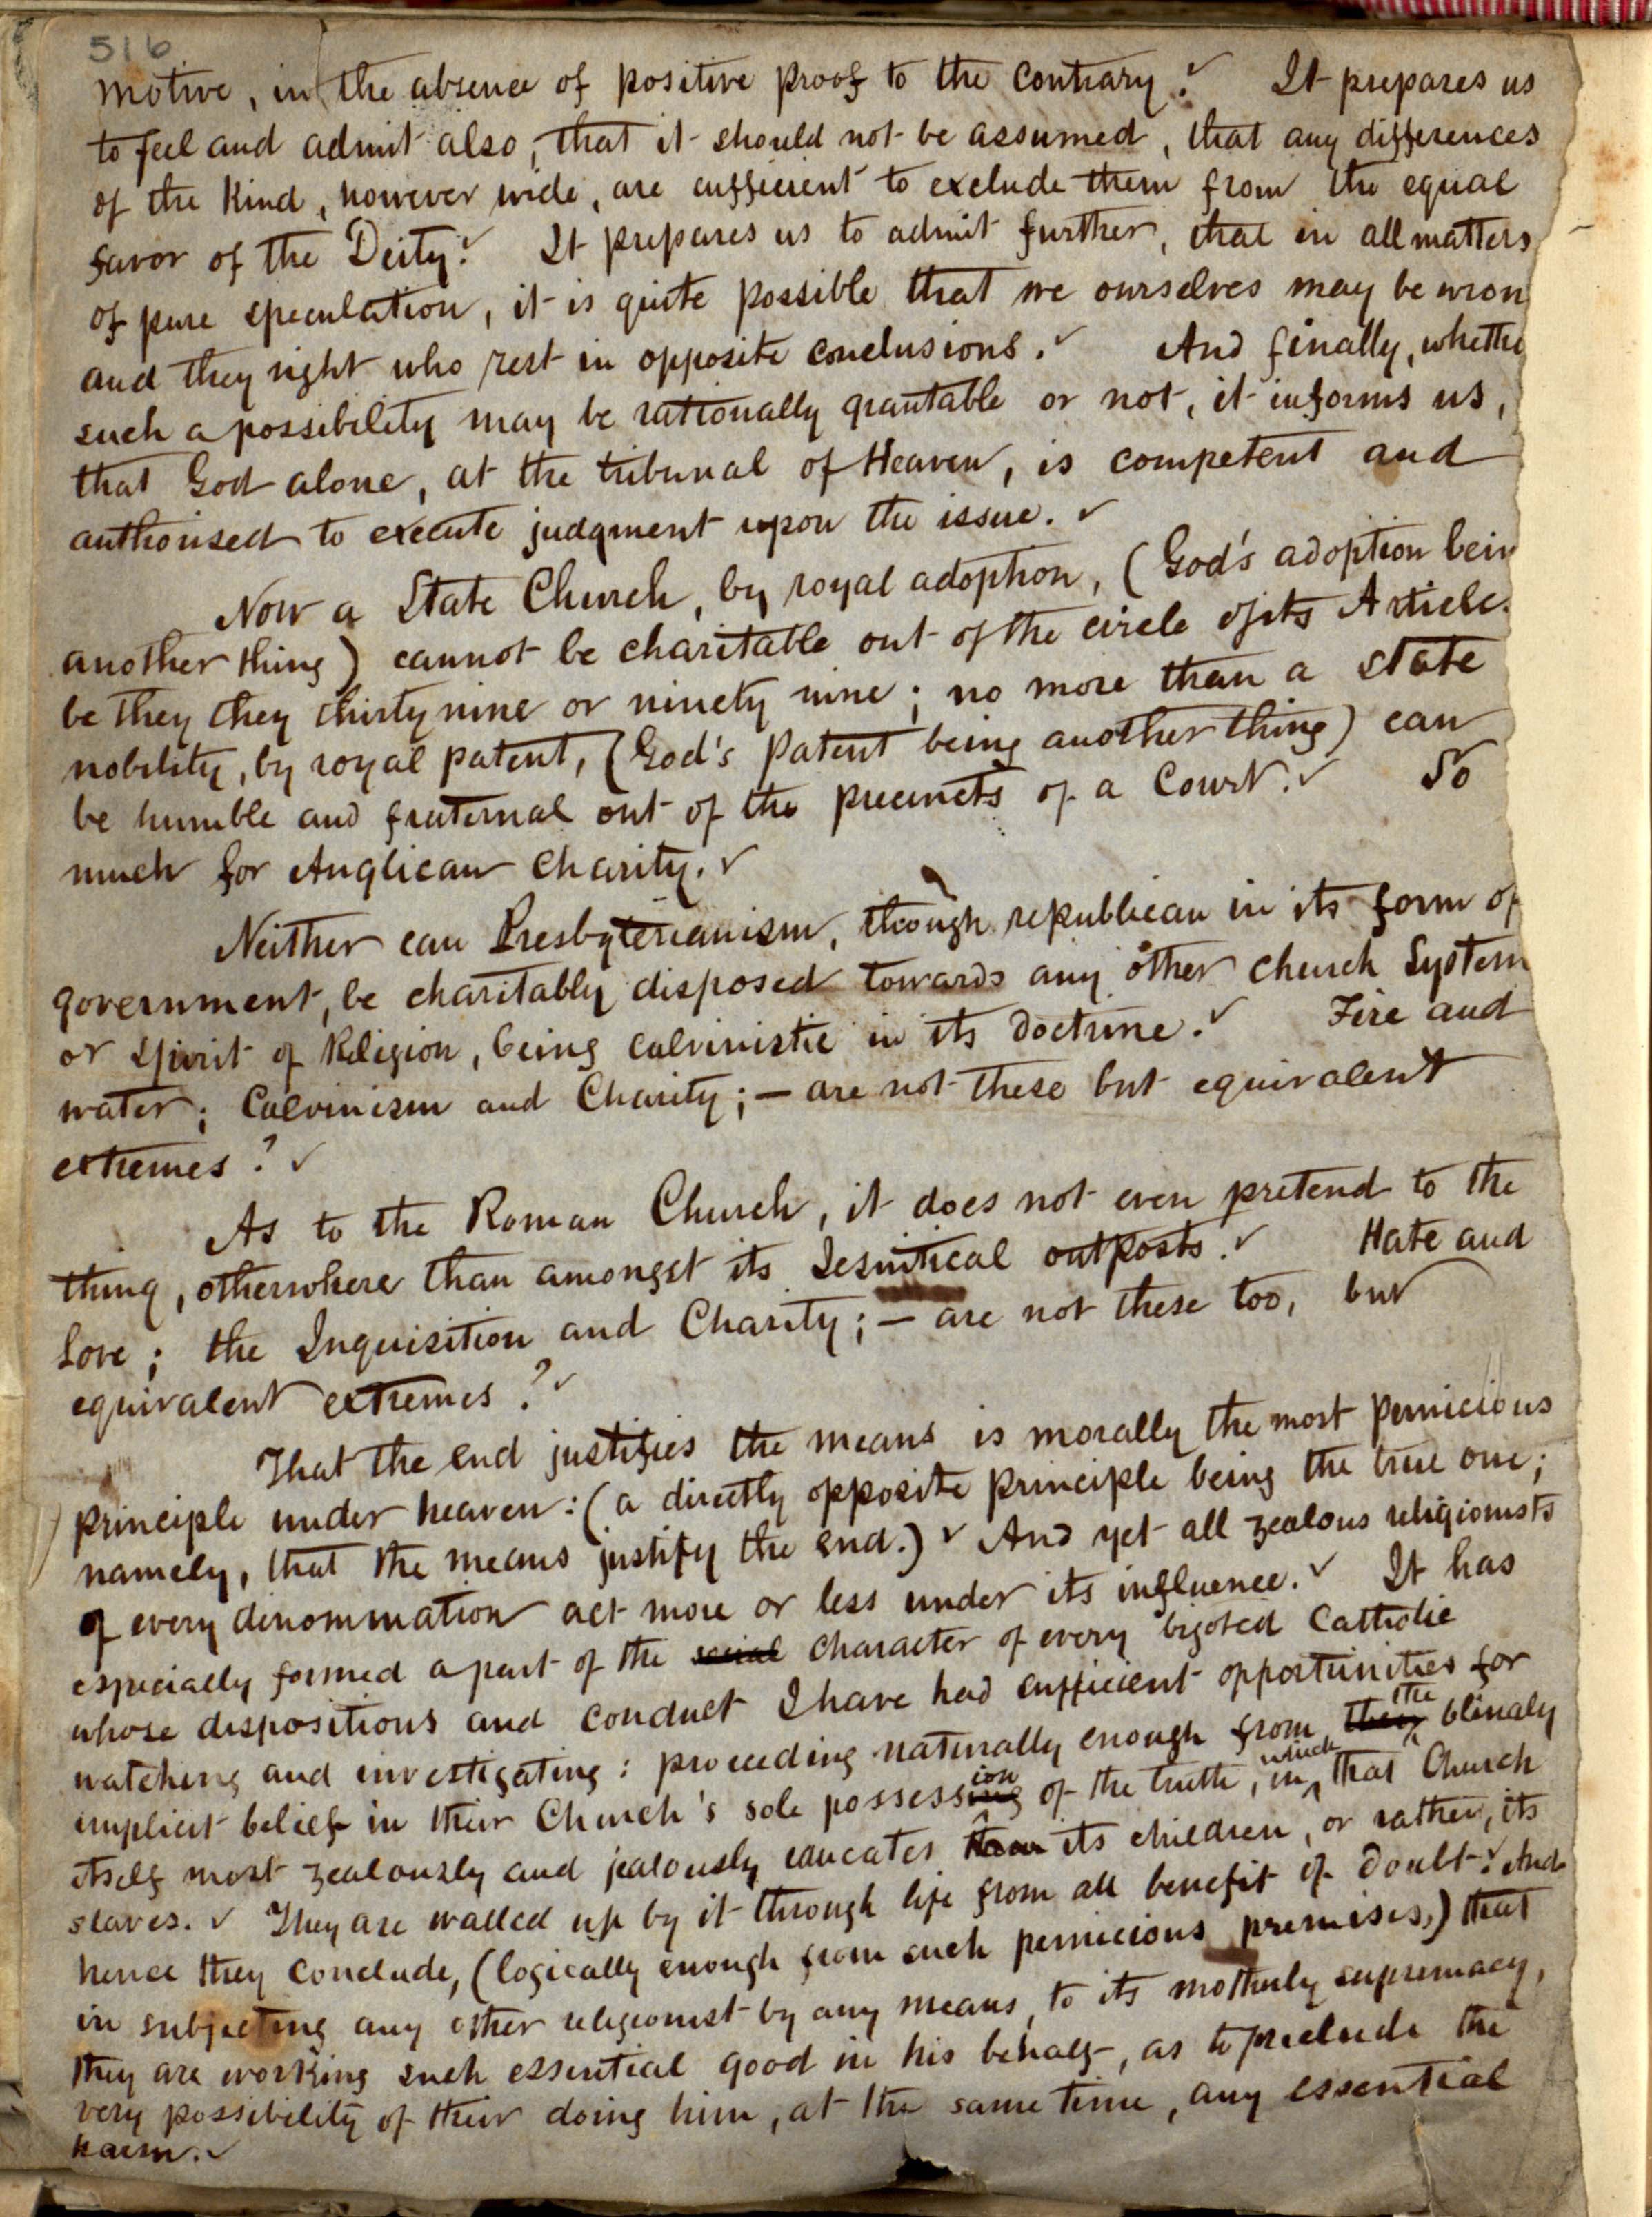 516
motive, in the absence of positive proof to the contrary. ✓ It prepares us
to feel and admit also, that it should not be assumed, that any differences
of the Kind, however wide, are sufficient to exclude them from the equal
favor of the Deity. ✓ It prepares us to admit further, that in all matters
of pure speculation, it is quite possible that we ourselves may be wron
and they right who rest in opposite conclusions. ✓ And finally, whethe
such a possibility may be rationally grantable or not, it informs us,
that God alone, at the tribunal of Heaven, is competent and
authorised to execute judgment upon the issue. ✓
Now a State Church, by royal adoption, (God's adoption bein
another thing) cannot be charitable out of the circle of its Article
be they they thirty nine or ninety nine; no more than a state
nobility, by royal patent, (God's patent being another thing) can
be humble and fraternal out of the precincts of a Court. ✓ So
much for Anglican Charity. ✓
Neither can Presbyterianism, though republican in its form of
government, be charitably disposed towards any other church System
or spirit of Religion, being calvinistic in its doctrine. ✓ Fire and
water; Calvinism and Charity; — are not these but equivalent
extremes? ✓
As to the Roman Church, it does not even pretend to the
thing, otherwhere than amongst its Jesuitical outposts. ✓ Hate and
Love; the Inquisition and Charity; — are not these too, but
equivalent extremes? ✓
That the end justifies the means is morally the most pernicious
principle under heaven: (a directly opposite principle being the true one;
namely, that the means justify the end.) ✓ And yet all zealous religionists
of every dinommination act more or less under its influence. ✓ It has
especially formed a part of the social character of every bigoted Catholic
whose dispositions and conduct I have had sufficient opportunities for
watching and investigating: proceeding naturally enough from the blindly
implicit belief in their Church's sole possession of the truth, in which that Church
itself most zealously and jealously educates its children, or rather, its
slaves. ✓ They are walled up by it through life from all benefit of doubt. ✓ And
hence they conclude, (logically enough from such pernicious premises,) that
in subjecting any other religionist by any means, to its motherly supremacy,
they are working such essential good in his behalf, as to preclude the
very possibility of their doing him, at the same time, any essential
harm. ✓